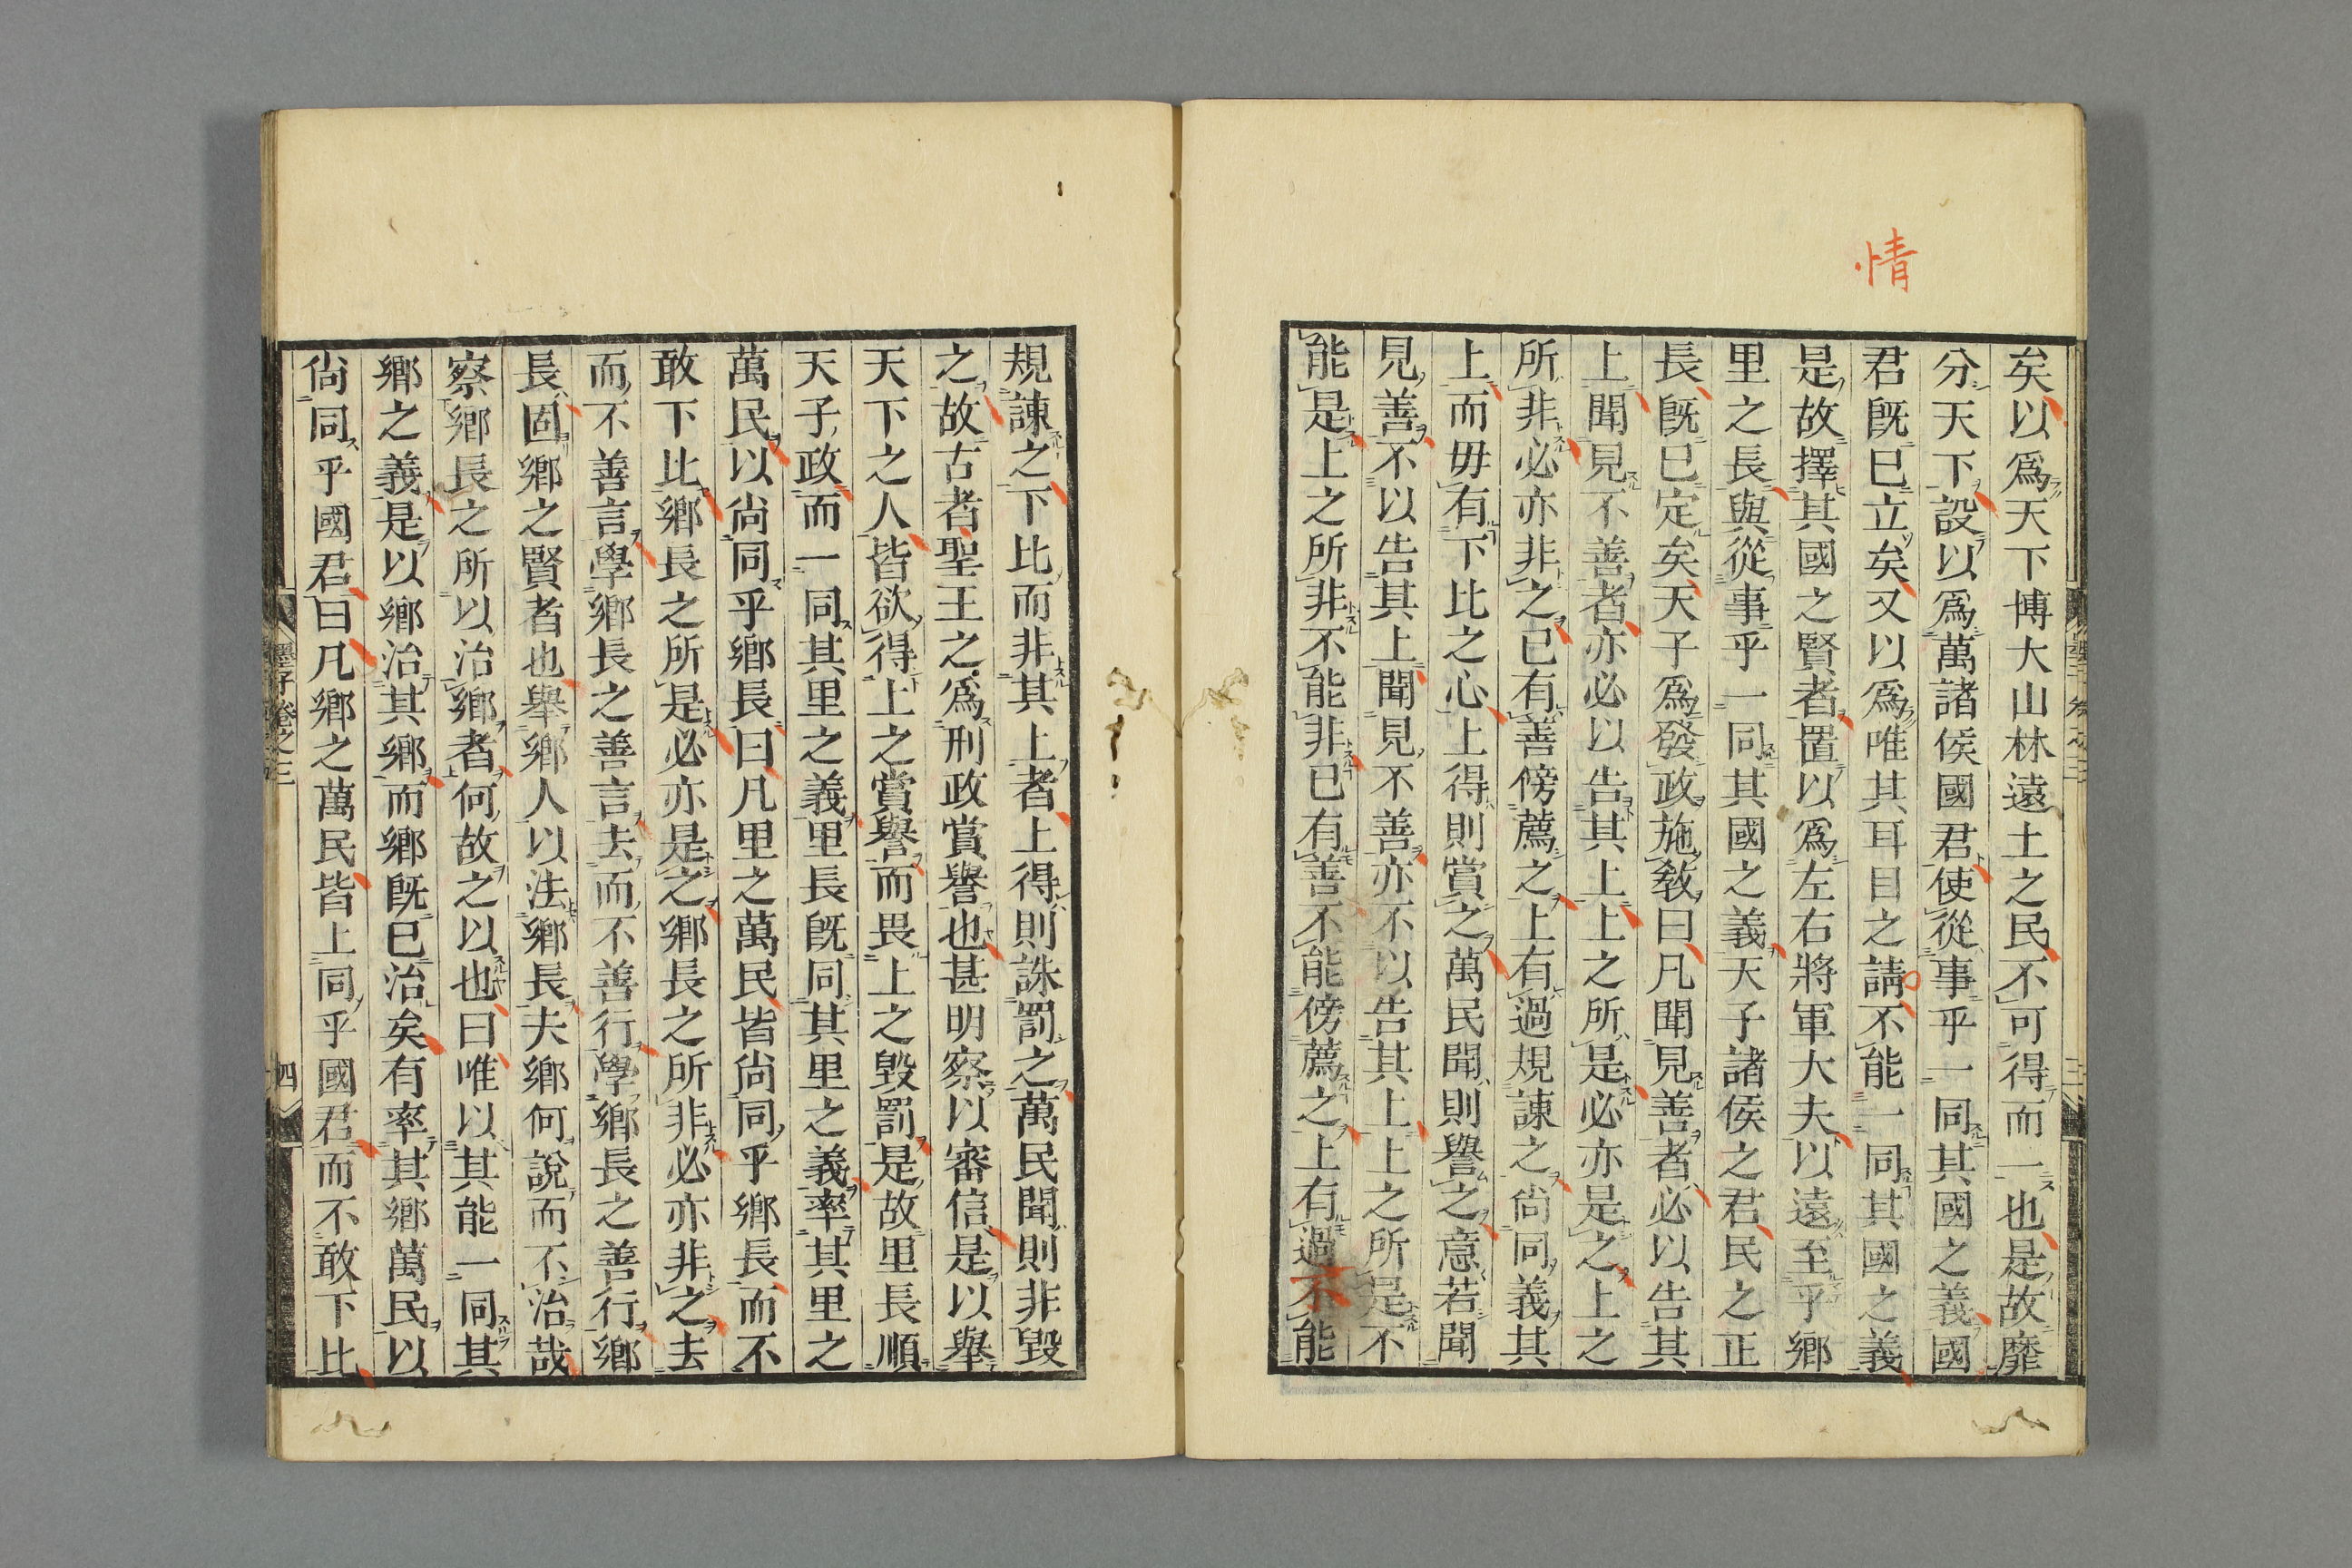 情
矣以爲天下博大山林遠土之民不可得而一也是故靡
分天下設以爲萬諸侯國君使從事乎一同其國之義國
君既已立矣又以爲唯其耳目之請不能一同其國之義
是故擇其國之賢者置以爲左右將軍大夫以遠至乎鄉
里之長與從事乎一同其國之義天子諸侯之君民之正
長既已定矣天子爲發政施敎曰凡聞見善者必以告其
上聞見不善者亦必以告其上上之所是必亦是之上之
所非必亦非之已有善傍薦之上有過規諫之尙同義其
上而毋有下比之心上得則賞之萬民聞則譽之意若聞
見善不以告其上聞見不善亦不以告其上上之所是不
能是上之所非不能非已有善不能傍薦之上有過不能
規諫之下比而非其上者上得則誅罰之萬民聞則非毀
之故古者聖王之爲刑政賞譽也甚明察以審信是以舉
天下之人皆欲得上之賞譽而畏上之毀罰是故里長順
天子政而一同其里之義里長既同其里之義率其里之
萬民以尙同乎鄉長曰凡里之萬民皆尙同乎鄉長而不
敢下比鄉長之所是必亦是之鄉長之所非必亦非之去
而不善言學鄉長之善言去而不善行學鄉長之善行鄉
長固鄉之賢者也舉鄉人以法鄉長夫鄉何說而不治哉
察鄉長之所以治鄉者何故之以也曰唯以其能一同其
鄉之義是以鄉治其鄉而鄉既已治矣有率其鄉萬民以
尙同乎國君曰凡鄉之萬民皆上同乎國君而不敢下比
墨子卷之三
四